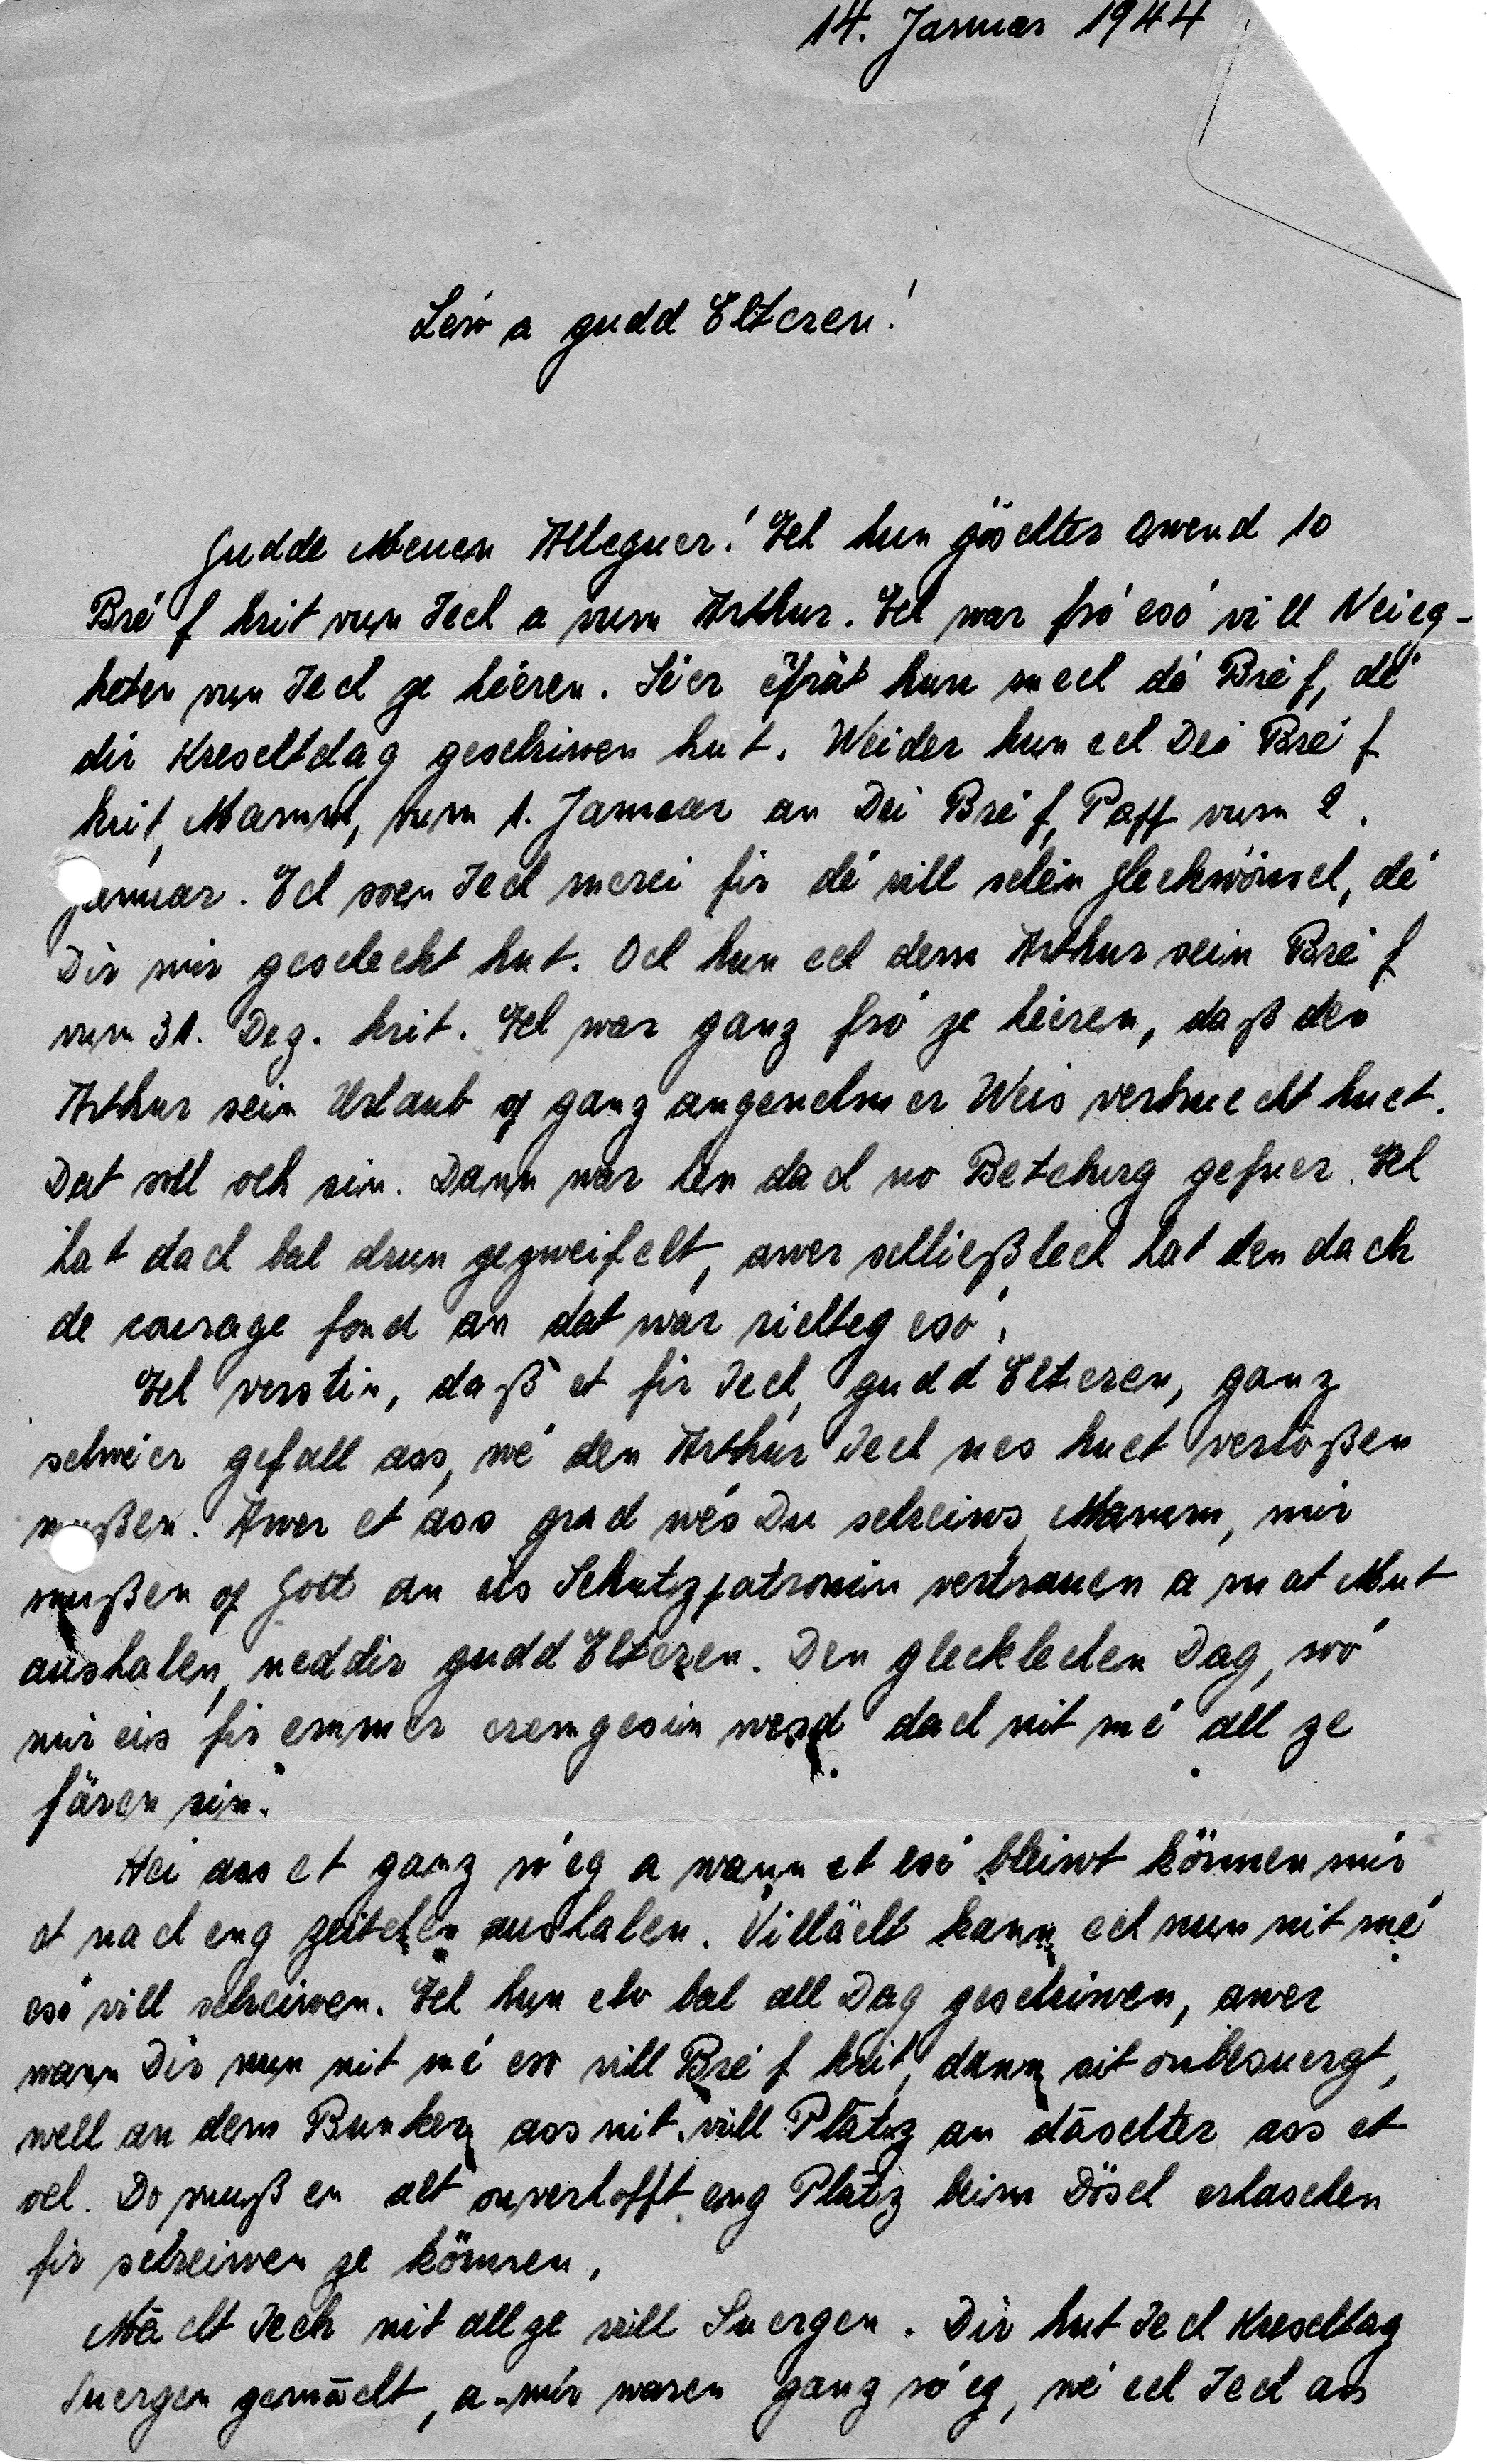 14. Januar 1944
Léw a gudd Elteren!
Gudde Meuen Alleguer! Ech hun göschter Owend 10
Bréf krit vun Iech a vum Arthur. Ech war fró esó vill Neieg-
keten vun Iech ze héeren. Séer gfrät hun mech dé Bréf, dé
dir Kreschtdag geschriwen hut. Weider hun ech Dei Bréf
krit, Mamm, vum 1. Januar an Dei Bréf, Papp vum 2.
Januar. Ech soen Iech merci fir dé vill schéin Gleckwönsch, dé
Dir mir gescheckt hut. Och hun ech dem Arthur sein Bréf
vum 31. Dez. krit. Ech war ganz fró ze héieren, daß den
Arthur sein Urlaub op ganz angenehmer Weis verbruecht huet.
Dat soll och sin. Dann wár hen dach no Beteburg gefuer. Ech
hat dach bal drun gezweifelt, awer schließlech hat den dach
de courage fond an dat wár richteg esó.
Ech verstin, daß et fir Iech, gudd Elteren, ganz
schwéier gefall ass, wé den Arthur Iech nes huet verloßen
mußen. Awer et ass grad wés Du schreiws, Mamm, mir
mußen op Gott an eis Schutzpatronin vertrauen a mat Mut
aushalen, net dir gudd Elteren. Den glecklechen Dag, wó
mir eis fir emmer eremgesin werd dach nit mé all ze
fären sin.
Hei ass et ganz róeg a wann et esó bleiwt können mir
et nach eng Zeitchen aushalen. Villächt kann ech nun nit mé
esó vill schreiwen. Ech hun elo bal all Dag geschriwen, awer
wann Dir nun nit mé eso vill Bréf krit, dann sit onbesuergt,
well an dem Bunker ass nit vill Plätz an däschter ass et
och. Do muß en alt onverhofft eng Plätz beim Dösch erhaschen
fir schreiwen ze können.
Mächt Iech nit allze vill Suergen. Dir hut Iech Kreschtag
Suergen gemächt, a mir waren ganz róeg, wé ech Iech an